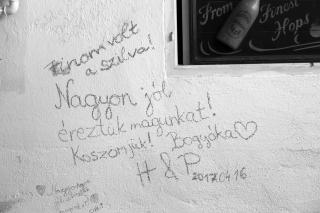 From Finest
Hops
Finom volt
a szilva!
Nagyon jól
éreztük magunkat!
Köszönjük! Bogyóka♡
H & P
2017.04.16